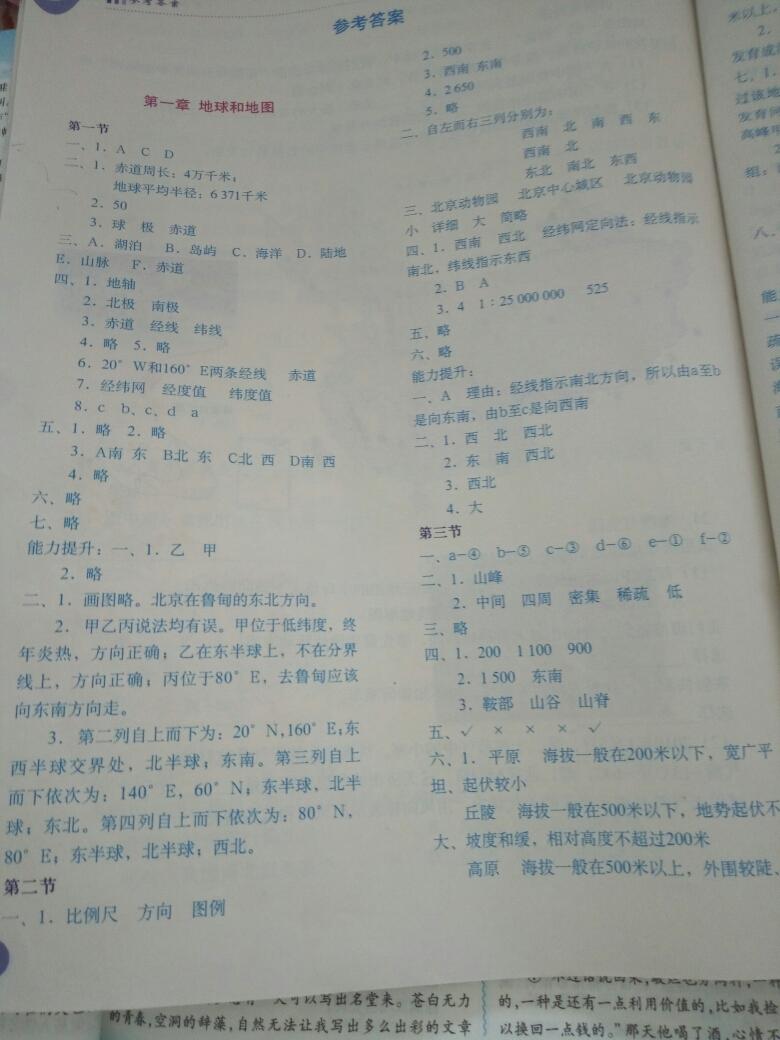 参考答案
参考答案
第一章 地球和地图
第一节
一、1．A C D
二、1．赤道周长：4万千米；
地球平均半径：6 371千米
2．50
3．球 极 赤道
三、A．湖泊 B．岛屿 C．海洋 D．陆地
E．山脉 F．赤道
四、1．地轴
2．北极 南极
3．赤道 经线 纬线
4．略 5．略
6．20° W和160° E两条经线 赤道
7．经纬网 经度值 纬度值
8．c b、c、d a
五、1．略 2．略
3．A南 东 B北 东 C北 西 D南 西
4．略
六、略
七、略
能力提升：一、1．乙 甲
2．略
二、1．画图略。北京在鲁甸的东北方向。
2．甲乙丙说法均有误。甲位于低纬度，终
年炎热，方向正确；乙在东半球上，不在分界
线上，方向正确；丙位于80° E，去鲁甸应该
向东南方向走。
3．第二列自上而下为：20° N,160° E;东
西半球交界处，北半球；东南。第三列自上
而下依次为：140° E，60° N；东半球，北半
球；东北。第四列自上而下依次为：80° N，
80° E；东半球，北半球；西北。
第二节
一、1．比例尺 方向 图例
2．500
3．西南 东南
4．2 650
5．略
二、自左而右三列分别为：
西南 北 南 西 东
西南 北
东北 南北 东西
三、北京动物园 北京中心城区 北京动物园
小 详细 大 简略
四、1．西南 西北 经纬网定向法：经线指示
南北，纬线指示东西
2．B A
3．4 1∶25 000 000 525
五、略
六、略
能力提升：
一、A 理由：经线指示南北方向，所以由a至b
是向东南，由b至c是向西南
二、1．西 北 西北
2．东 南 西北
3．西北
4．大
第三节
一、a—④ b—⑤ c—③ d—⑥ e—① f—②
二、1．山峰
2．中间 四周 密集 稀疏 低
三、略
四、1．200 1 100 900
2．1 500 东南
3．鞍部 山谷 山脊
五、✓ × × × ✓
六、1．平原 海拔一般在200米以下，宽广平
坦、起伏较小
丘陵 海拔一般在500米以下，地势起伏不
大、坡度和缓，相对高度不超过200米
高原 海拔一般在500米以上，外围较陡、
米以上，
2．
发育成
七、1．
过该地
发育河
高峰
2
组：
八、
能
一
疏
误
天可以写出名堂来。苍白无力
的青春，空洞的辞藻，自然无法让我写出多么出彩的文章
的，一种是还有一点利用价值的，比如我捡
以换回一点钱的。”那天他喝了酒，心情不